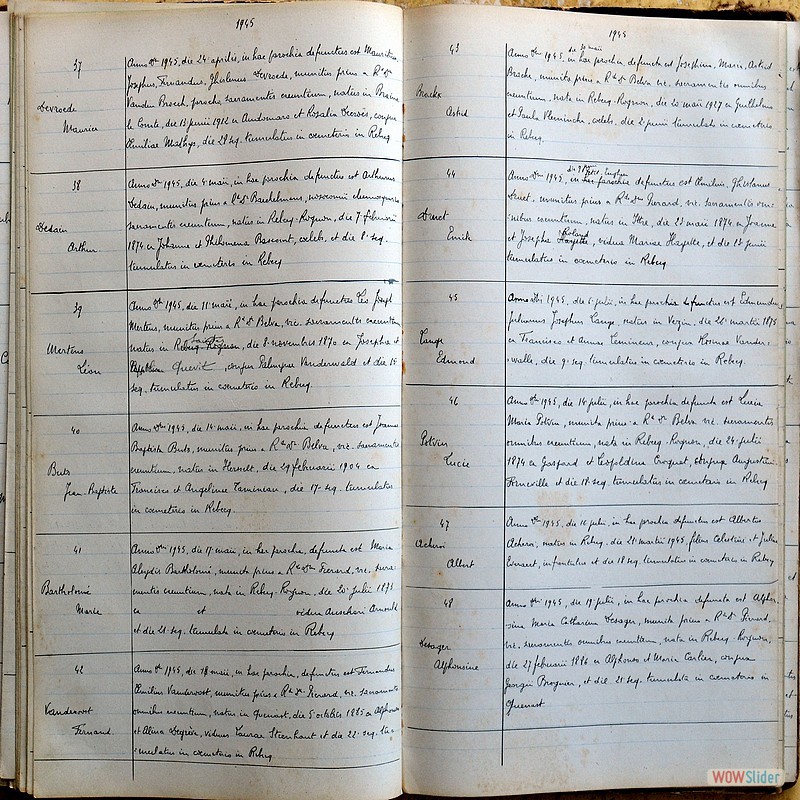 1945
37
Devroede
Maurice
Anno Dni 1945, die 24 aprilis, in hac parochia defunctus est Mauritius,
Josephus, Fernandus, Ghislenus Devroede, munitus prius a Rdo Dno
Vanden Broeck, parocho sacramentis exeuntium, natus in Braine
le Comte, die 13 junii 1912 ex Audomaro et Rosalia
Emiliae Mathys, die 28 sq. tumulatus in coemeterio in Rebecq
38
Dedain
Arthur
Anno Dni 1945, die 4 maii, in hac parochia defunctus est Arthurus
Dedain, munitus prius a Rdo Dno
sacramentis exeuntium, natus in Rebecq-Rognon, die 7 februarii
1874 ex Johanne et Philomena Bassourt, coelebs, et die 8 seq.
tumulatus in coemeterio in Rebecq
39
Mertens
Léon
Anno Dni 1945, die 11 maii, in hac parochia defunctus Leo Joseph
Mertens, munitus prius a Rdo Dno Belva, vic. sacramentis exeuntium
natus in Rebecq-Rognon, die 8 novembris 1870 ex Josepho et
Quévit, conjux Palmyrae Vanderwald et die 15
seq. tumulatus in coemeterio in Rebecq.
40
Buts
Jean-Baptiste
Anno Dni 1945, die 14 maii, in hac parochia defunctus est Joannes
Baptista Buts, munitus prius a Rdo Dno Belva, vic. sacramentis
exeuntium, natus in Herselt, die 29 februarii 1904 ex
Francisco et Angelina Tamineau, die 17 seq. tumulatus
in coemeterio in Rebecq.
41
Bartholomé
Marie
Anno Dni 1945, die 17 maii, in hac parochia, defuncta est Maria
Aloysia Bartholomé, munita prius a Rdo Dno Ferard, vic. sacra
mentis exeuntium, nata in Rebecq-Rognon, die 20 julii 1873
ex et vidua Arnould
et die 21 seq. tumulata in coemeterio in Rebecq
42
Vandervost
Fernand.
Anno Dni 1945, die 18 maii, in hac parochia, defunctus est Fernandus
Emilius Vandervost, munitus prius a Rdo Dno Ferard, vic. sacramentis
omnibus exeuntium, natus in Quenast, die 5 octobris 1885 ex Alphonso
et Alma viduus Laurae Steenhaut et die 22 seq. tu-
mulatus in coemeterio in Rebecq
1945
43
Broeckx
Astrid
die 30 maii
Anno Dni 1945, in hac parochia, defuncta est Josephina, Maria, Astrid
Broeckx, munita prius a Rdo Dno Belva vic. sacramentis omnibus
exeuntium, nata in Rebecq-Rognon, die 20 maii 1927 ex Guillelmo
et Paula coelebs, die 2 junii tumulata in coemeterio
in Rebecq.
44
Druet
Emile
Anno Dni 1945, in hac parochia defunctus est Emilius, Ghislenus
Druet, munitus prius a Rdo Dno Ferard, vic. sacramentis om-
nibus exeuntium, natus in Ittre, die 23 maii 1874 ex Joanne
et Josepha Roland, viduus Mariae Hazette, et die 13 junii
tumulatus in coemeterio in Rebecq
45
Lange
Edmond
Anno Dni 1945, die 6 julii, in hac parochia defunctus est Edmundus
Julianus Josephus Lange, natus in Vezin, die 26 martii 1875
ex Francisco et Anna Lemineur, conjux Rosinae Vander-
walle, die 9 seq. tumulatus in coemeterio in Rebecq.
46
Potvin
Lucie
Anno Dni 1945, die 14 julii, in hac parochia defuncta est Lucia
Maria Potvin, munita prius a Rdo Dno Belva vic. sacramentis
omnibus exeuntium, nata in Rebecq-Rognon, die 24 julii
1874 ex Gaspard et Leopoldina Croquet, conjux Augustini
et die 18 seq. tumulata in coemeterio in Rebecq
47
Acheroi
Albert
Anno Dni 1945, die 16 julii, in hac parochia defunctus est Albertus
Acheroi, natus in Rebecq, die 21 martii 1945, filius Celestini et Juliae
Everaert, infantulus et die 18 seq. tumulatus in coemeterio in Rebecq
48
Desager
Alphonsine
Anno Dni 1945, die 19 julii, in hac parochia defuncta est Alphon
sina Maria Catharina Desager, munita prius a Rdo Dno Ferard,
vic. sacramentis omnibus exeuntium, nata in Rebecq-Rognon,
die 27 februarii 1886 ex Alphonso et Maria Carlier, conjux
Georgii Brognier, et die 21 seq. tumulata in coemeterio in
Quenast
WOWSlider